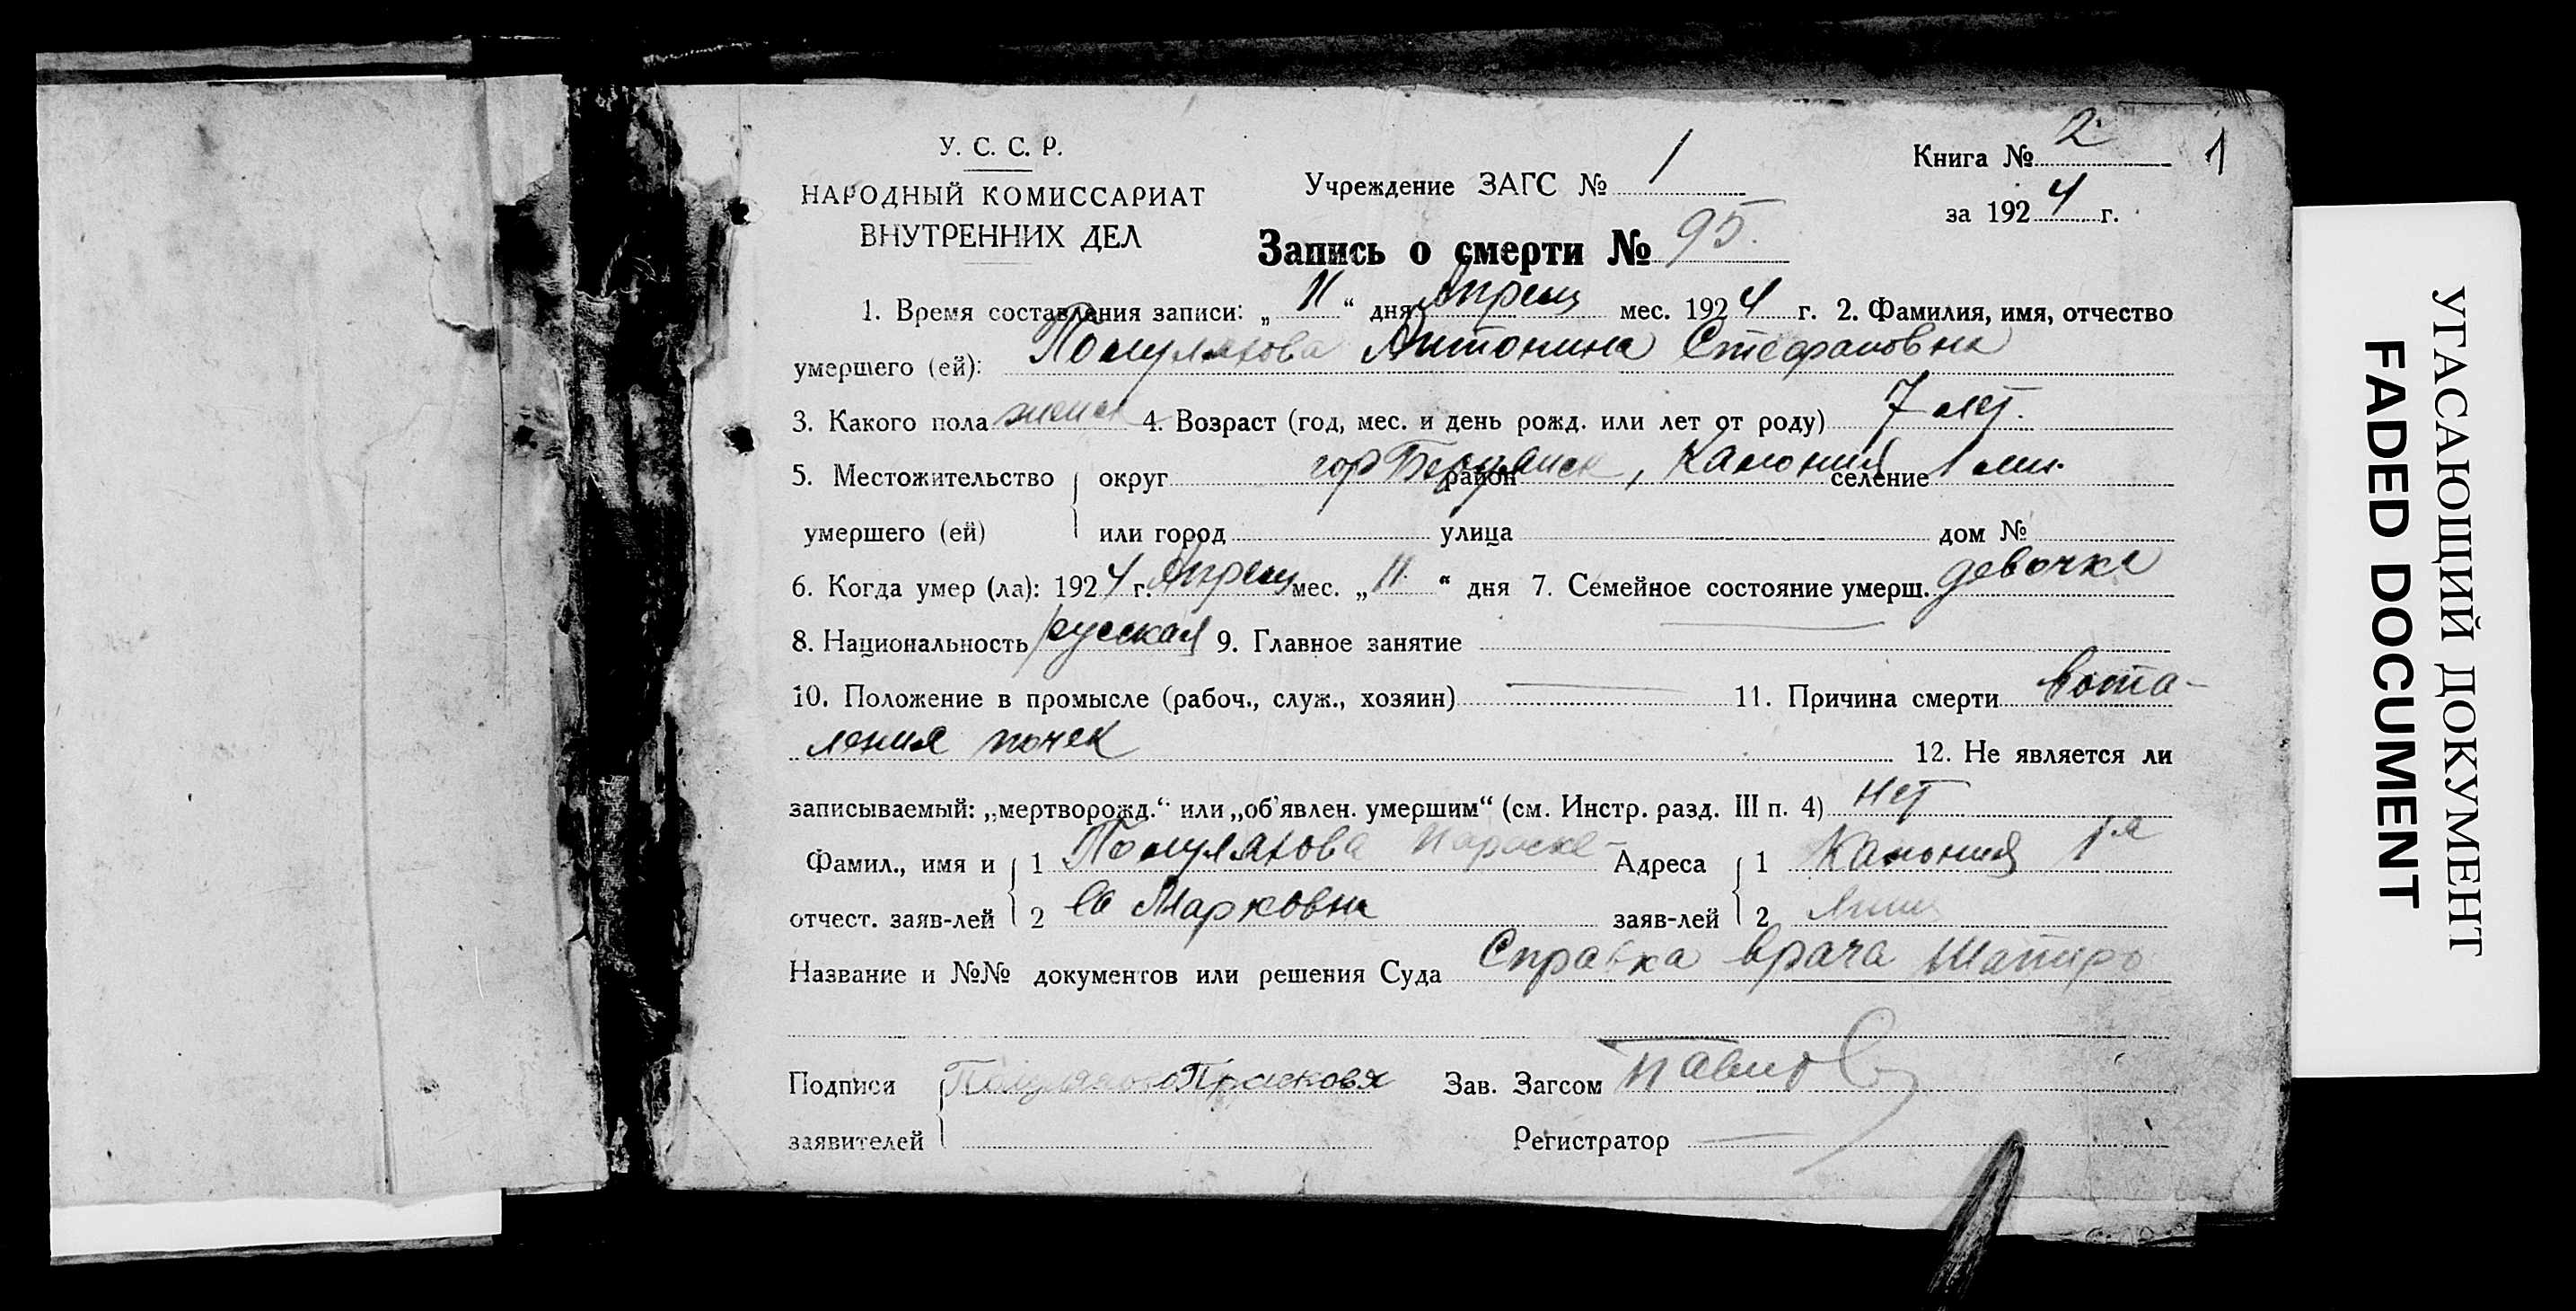 У. С. С. Р.
НАРОДНЫЙ КОМИССАРИАТ
ВНУТРЕННИХ ДЕЛ
Учреждение ЗАГС № 1
Книга № 2
1
за 1924 г.
Запись о смерти № 95.
1. Время составления записи: „11“ дня Апреля мес. 1924 г. 2. Фамилия, имя, отчество
умершего (ей): Полуляхова Антонина Стефановна
3. Какого пола женск 4. Возраст (год, мес. и день рожд. или лет от роду) 7 лет.
5. Местожительство округ гор Бердянск, район Калония селение 1 лин.
умершего (ей) или город улица дом №
6. Когда умер (ла): 1924 г. Апреля мес. „11“ дня 7. Семейное состояние умерш. девочка
8. Национальность русская 9. Главное занятие —
10. Положение в промысле (рабоч., служ., хозяин) — 11. Причина смерти воспа-
ления почек
12. Не является ли
записываемый: „мертворожд.“ или „об'явлен. умершим“ (см. Инстр. разд. III п. 4) нет
Фамил., имя и 1 Полуляхова Параске- Адреса 1 Калония 1я
отчест. заяв-лей 2 ва Марковна заяв-лей 2 Линия
Название и №№ документов или решения Суда Справка врача Шапиро
Подписи Полуляхова Прасковя Зав. Загсом Павлов
заявителей Регистратор —
УГАСАЮЩИЙ ДОКУМЕНТ
FADED DOCUMENT